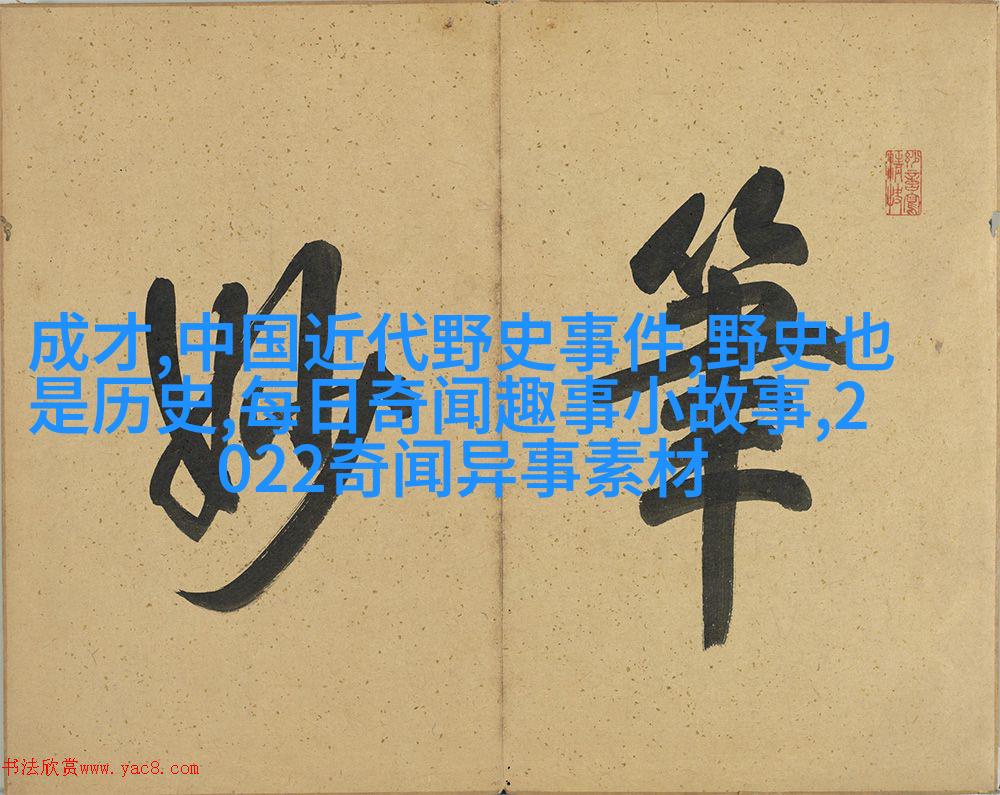 筆妙
成才,中国近代野史事件,野史也
是历史,每日奇闻趣事小故事,2
022奇闻异事素材
书法欣赏www.yac8.com